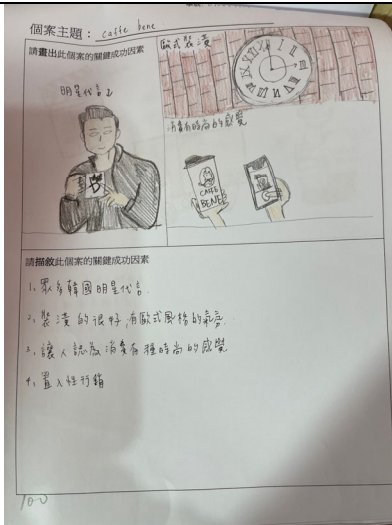 個案主題：caffe bene
請畫出此個案的關鍵成功因素
明星代言
歐式裝潢
消費有時尚的感覺
CAFFE
BENE
請描敘此個案的關鍵成功因素
1、眾多韓國明星代言.
2、裝潢的很好,有歐式風格的氣氛.
3、讓人認為消費有種時尚的感覺
4、置入性行銷
100